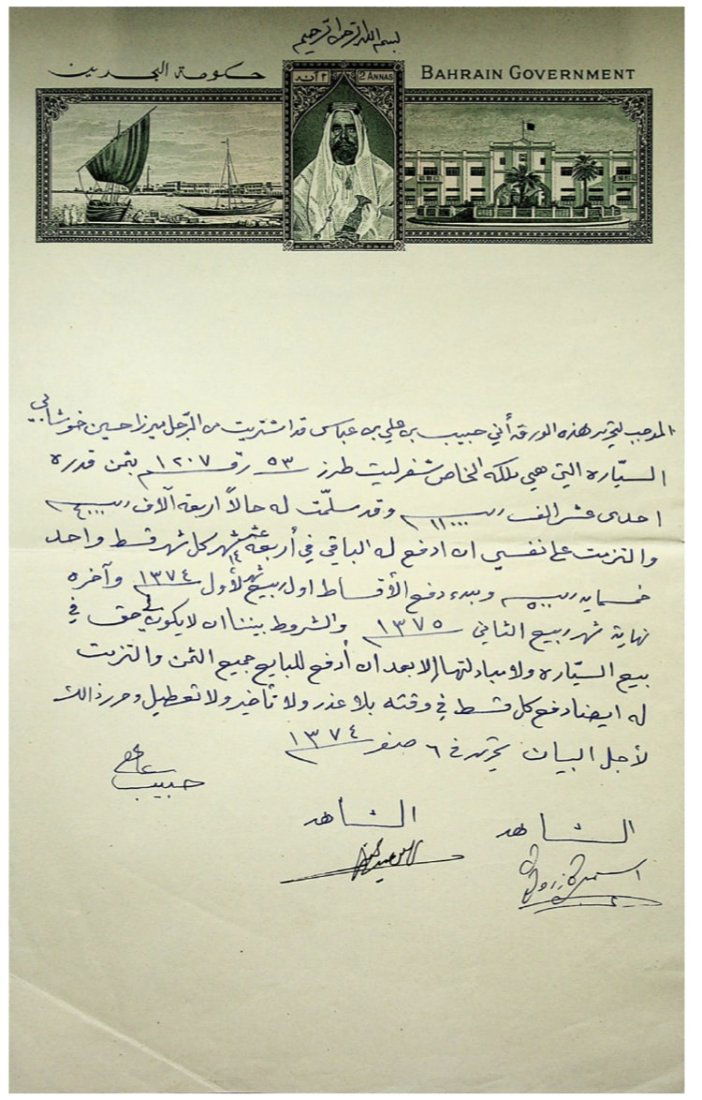 بسم الله الرحمن الرحيم
حكومة البحرين
٢ آنه
2 ANNAS
BAHRAIN GOVERNMENT
الموجب لتحرير هذه الورقه أني حبيب بن علي بن عباس قد اشتريت من الرجل ميرزا حسين
السيّاره التي هي ملكه الخاص شفرليت طرز ٥٣ رقم ١٢٠٧ بثمن قدره
احدى عشر الف ربيه ١١٠٠٠ وقد سلّمت له حالاً اربعة آلاف ربيه ٤٠٠٠
والتزمت على نفسي ان ادفع له الباقي في أربعة عشر ١٤ شهر كل شهر قسط واحد
خمسمايه ربيه ٥٠٠ وبدء دفع الأقساط اول شهر ربيع لأول ١٣٧٤ وآخره
نهاية شهر ربيع الثاني ١٣٧٥ والشروط بيننا ان لا يكون لي حق في
بيع السيّاره ولا مبادلتها إلا بعد ان أدفع للبايع جميع الثمن والتزمت
له ايضا دفع كل قسط في وقته بلا عذر ولا تأخير ولا تعطيل وحرر ذالك
لأجل البيان تحريره في ٦ صفر ١٣٧٤
حبيب علي
الشاهد
الشاهد